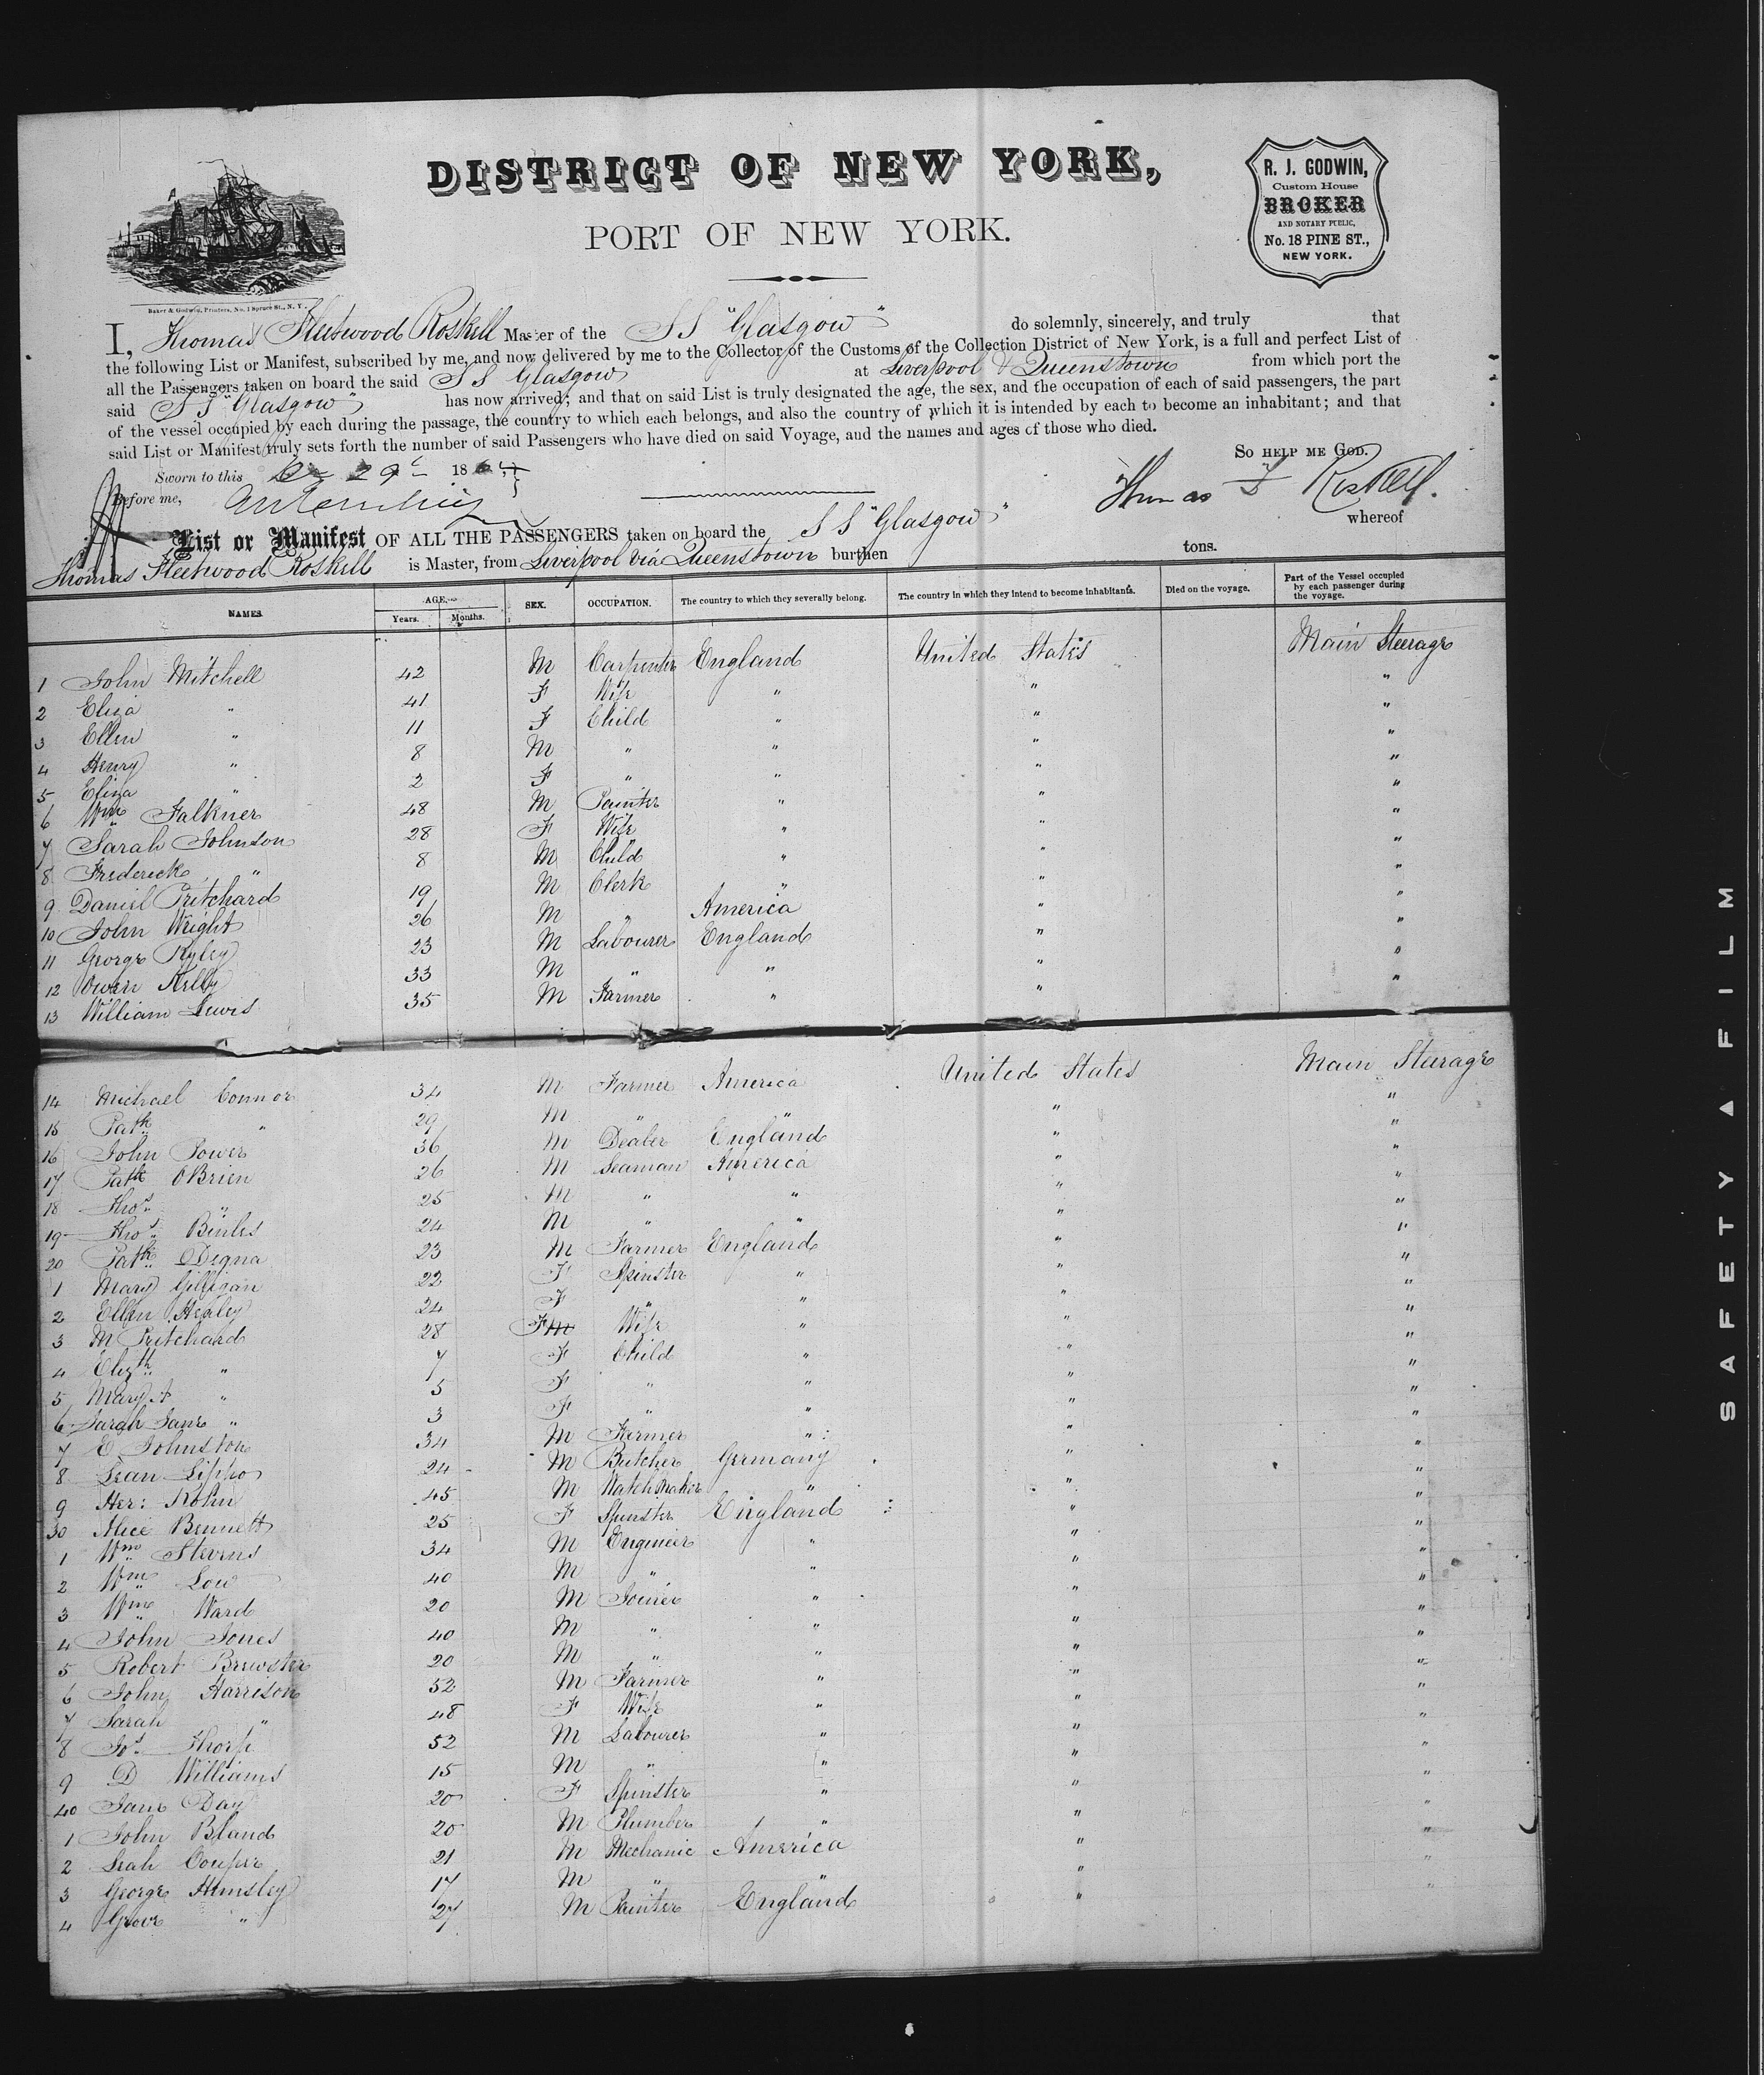 DISTRICT OF NEW YORK,
PORT OF NEW YORK.
R. J. GODWIN,
Custom House
BROKER
AND NOTARY PUBLIC,
No. 18 PINE ST.,
NEW YORK.
Baker & Godwin, Printers, No. 1 Spruce St., N. Y.
I, Thomas Fleetwood Roskell Master of the SS "Glasgow" do solemnly, sincerely, and truly that
the following List or Manifest, subscribed by me, and now delivered by me to the Collector of the Customs of the Collection District of New York, is a full and perfect List of
all the Passengers taken on board the said SS Glasgow at Liverpool & Queenstown from which port the
said SS "Glasgow" has now arrived; and that on said List is truly designated the age, the sex, and the occupation of each of said passengers, the part
of the vessel occupied by each during the passage, the country to which each belongs, and also the country of which it is intended by each to become an inhabitant; and that
said List or Manifest truly sets forth the number of said Passengers who have died on said Voyage, and the names and ages of those who died.
So help me God.
Sworn to this 29 186
Before me,
Thomas F Roskell.
List or Manifest OF ALL THE PASSENGERS taken on board the SS "Glasgow" whereof
Thomas Fleetwood Roskell is Master, from Liverpool via Queenstown burthen tons.
NAMES. AGE. SEX. OCCUPATION. The country to which they severally belong. The country in which they intend to become inhabitants. Died on the voyage. Part of the Vessel occupied by each passenger during the voyage.
Years. Months.
1 John Mitchell 42 M Carpenter England United States Main Steerage
2 Eliza " 41 F Wife " " "
3 Ellen " 11 F Child " " "
4 Henry " 8 M " " " "
5 Eliza " 2 F " " " "
6 Wm Falkner 48 M Painter " " "
7 Sarah Johnson 28 F Wife " " "
8 Frederick " 8 M Child " " "
9 Daniel Pritchard 19 M Clerk " " "
10 John Wright 26 M " America " "
11 George Ryley 23 M Labourer England " "
12 Owen Kelly 33 M " " " "
13 William Lewis 35 M Farmer " " "
14 Michael Connor 34 M Farmer America United States Main Steerage
15 Patk " 29 M " " " "
16 John Power 36 M Dealer England " "
17 Patk OBrien 26 M Seaman America " "
18 Thos " 25 M " " " "
19 Thos 24 M " " " "
20 Patk 23 M Farmer England " "
1 Mary Gilligan 22 F Spinster " " "
2 Ellen Healey 24 F " " " "
3 M Pritchard 28 F M Wife " " "
4 Elizth " 7 F Child " " "
5 Mary A " 5 F " " " "
6 Sarah Jane " 3 F " " " "
7 E Johnston 34 M Farmer " " "
8 Lean Lippo 24 M Butcher Germany " "
9 Her: Kohn 45 M Watchmaker " " "
30 Alice Bennett 25 F Spinster England " "
1 Wm Stevens 34 M Engineer " " "
2 Wm Low 40 M " " " "
3 Wm Ward 20 M Joiner " " "
4 John Jones 40 M " " " "
5 Robert Brewster 20 M " " " "
6 John Harrison 52 M Farmer " " "
7 Sarah " 48 F Wife " " "
8 Jos Thorp 52 M Labourer " " "
9 D Williams 15 M " " " "
40 Jane Day 20 F Spinster " " "
1 John Bland 20 M Plumber " " "
2 Leah Couper 21 M Mechanic America " "
3 George Hemsley 17 M " " " "
4 Grove " 27 M Painter England "
SAFETY FILM